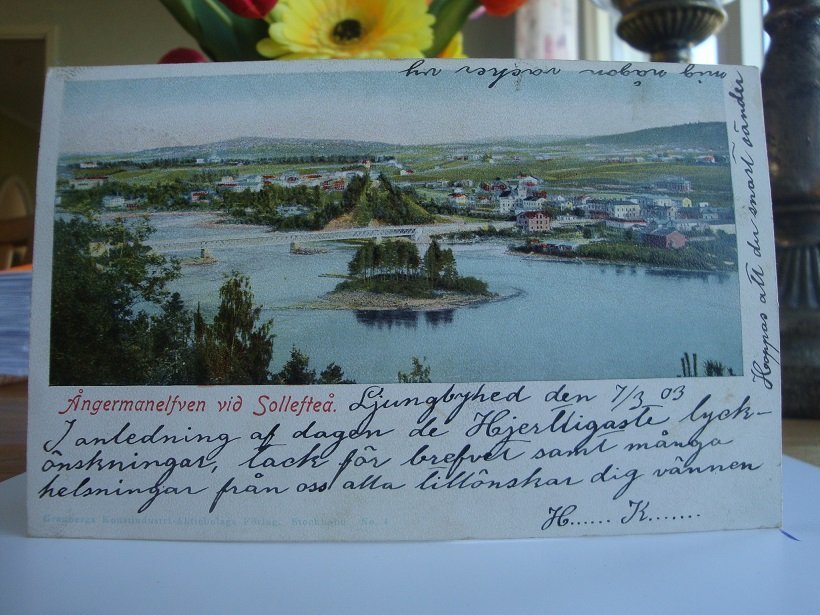 Ångermanelfven vid Sollefteå.
Ljungbyhed den 7/3 03
I anledning af dagen de Hjertligaste lyck-
önskningar, tack för brefvet samt många
helsningar från oss alla tillönskar dig vännen
H...... K.......
Hoppas att du snart sänder
mig någon vacker vy
Granbergs Konstindustri-Aktiebolags Förlag, Stockholm. No.